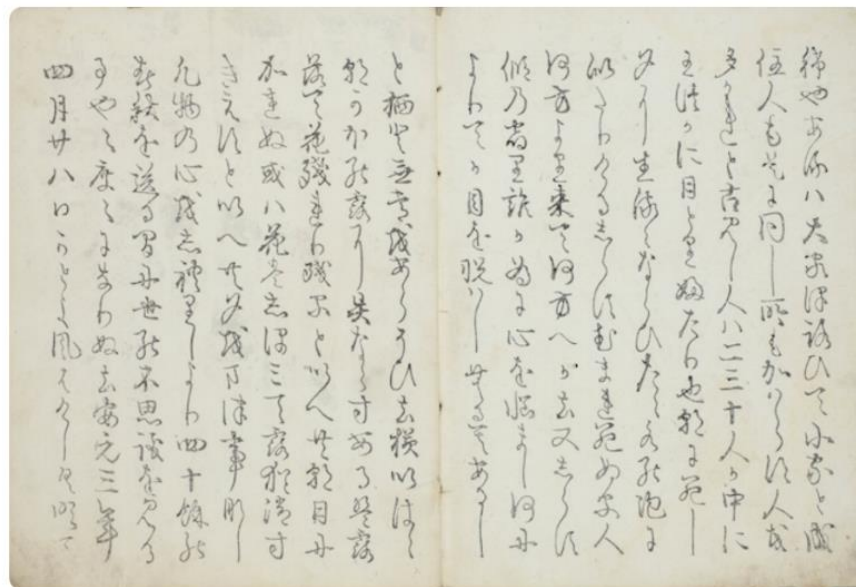 稀也あるハ大家ほろひて小家と成
住人も是に同し所もかハらす人も
多かれと古見し人ハ二三十人か中に
わつかにひとりふたり也朝に死し
夕に生るゝならひたゝ水の泡に
似たりけるしらすむまれ死ぬる人
何方より来て何方へか去又しらす
仮の宿り誰か為に心を悩まし何に
よりてか目を悦ハしむるそあるし
と栖と無常をあらそひ去様いはゝ
朝かほの露に異ならすあるは露
落て花残れり残るといへ共朝日に
かれぬ或ハ花は志ほミて露猶消す
きえすといへ共夕をまつ事なし
凡物の心を志れりしより四十餘の
春秋を送る間に世の不思議を見る
事やゝ度々になりぬ去安元三年
四月廿八日かとよ風はけしく吹て